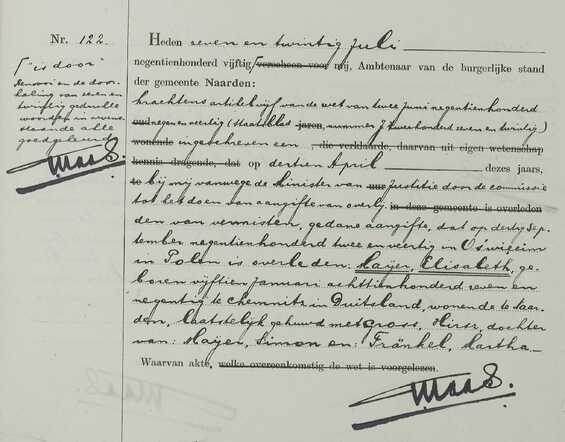 Nr. 122.
"is door"
Heden zeven en twintig Juli
negentienhonderd vijftig, verscheen voor mij, Ambtenaar van de burgerlijke stand
der gemeente Naarden:
krachtens artikel vijf van de wet van twee Juni negentienhonderd
oud negen en veertig (Staatsblad jaren, nummer J tweehonderd zeven en twintig)
wonende ingeschreven een , die verklaarde, daarvan uit eigen wetenschap
kennis dragende, dat op dertien April dezes jaars,
te bij mij vanwege de Minister van uur Justitie door de commissie
tot het doen van aangifte van overlij- in deze gemeente is overleden
den van vermisten, gedane aangifte, dat op dertig Sep-
tember negentienhonderd twee en veertig in Oswiecim
in Polen is overleden: Mayer, Elisabeth, ge-
boren vijftien Januari achttienhonderd zeven en
negentig te Chemnitz in Duitsland, wonende te Naar-
den, laatstelijk gehuwd met Gross, Hirsz, dochter
van: Mayer, Simon en: Fränkel, Martha.
Waarvan akte, welke overeenkomstig de wet is voorgelezen.
Maas.
Hiervoor en de door-
haling van zeven en
twintig gedrukte
woorden in neven-
staande akte
goedgekeurd
Maas.